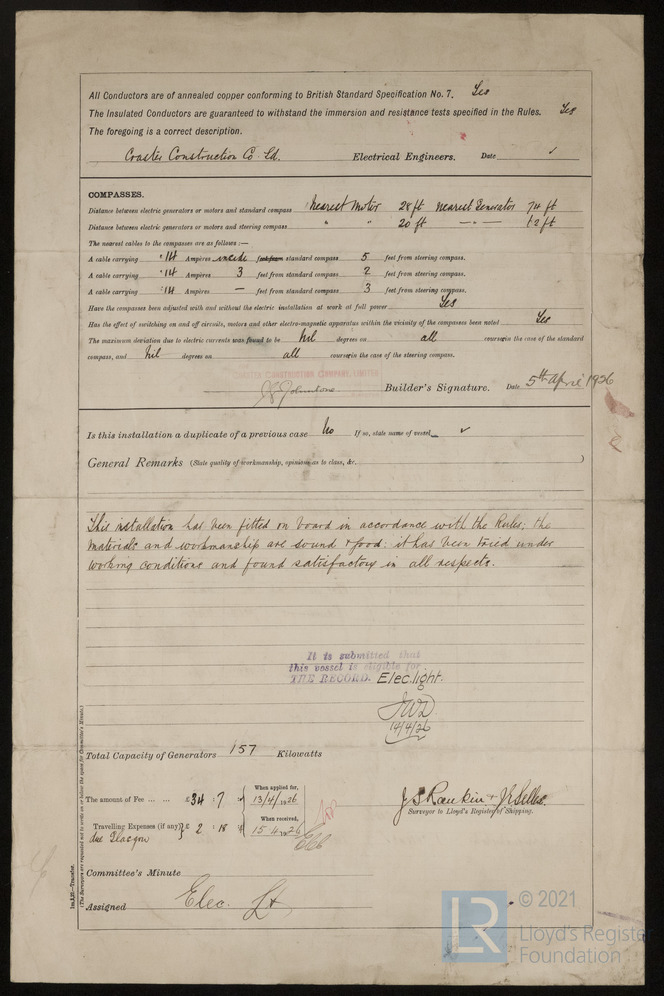 All Conductors are of annealed copper conforming to British Standard Specification No. 7. Yes
The Insulated Conductors are guaranteed to withstand the immersion and resistance tests specified in the Rules. Yes
The foregoing is a correct description.
Coaster Construction Co Ld. Electrical Engineers. Date
COMPASSES.
Distance between electric generators or motors and standard compass Nearest Motor 28 ft nearest Generator 74 ft
Distance between electric generators or motors and steering compass " " 20 ft — " — 62 ft
The nearest cables to the compasses are as follows:—
A cable carrying .14 Ampères inside feet from standard compass 5 feet from steering compass.
A cable carrying .14 Ampères 3 feet from standard compass 2 feet from steering compass.
A cable carrying .14 Ampères — feet from standard compass 3 feet from steering compass.
Have the compasses been adjusted with and without the electric installation at work at full power Yes
Has the effect of switching on and off circuits, motors and other electro-magnetic apparatus within the vicinity of the compasses been noted Yes
The maximum deviation due to electric currents was found to be Nil degrees on all course in the case of the standard
compass, and Nil degrees on all course in the case of the steering compass.
COASTER CONSTRUCTION COMPANY, LIMITED
J Johnstone Builder's Signature. Date 5th April 1926
Is this installation a duplicate of a previous case No If so, state name of vessel
General Remarks (State quality of workmanship, opinions as to class, &c. )
This installation has been fitted on board in accordance with the Rules; the
materials and workmanship are sound & good: it has been tried under
working conditions and found satisfactory in all respects.
It is submitted that
this vessel is eligible for
THE RECORD. Elec. light.
JWD
14/4/26
Total Capacity of Generators 157 Kilowatts
The amount of Fee ... ... £34 : 7 : When applied for, 13/4/1926
Travelling Expenses (if any) £ 2 : 18 : When received, 15.4.1926
due Glasgow
J S Rankin & J R Selles.
Surveyor to Lloyd's Register of Shipping.
Committee's Minute
Assigned Elec. Lt
Im.8.25—Transfer.
(The Surveyors are requested not to write on or below the space for Committee's Minute.)
LR © 2021
Lloyd's Register
Foundation